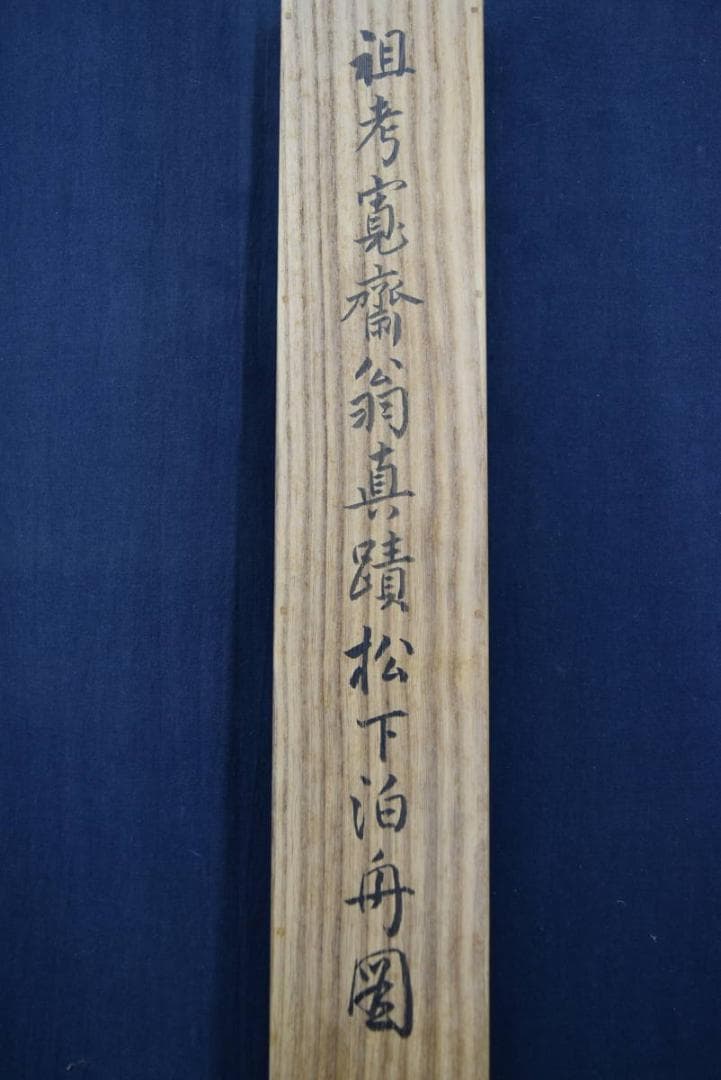 祖考寛齋翁真蹟松下泊舟圖